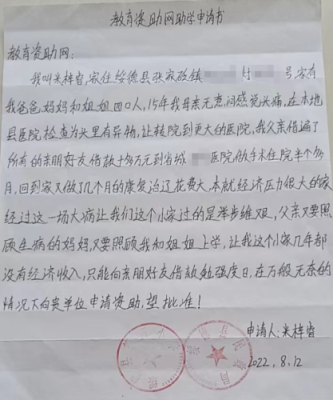 教育资助网助学申请书
教育资助网：
我叫米梓睿，家住绥德县张家砭镇 村 号，家有
我爸爸妈妈和姐姐四口人，15年我母亲无意间感觉头痛，在本地
县医院检查为头里有异物，让转院到更大的医院，我父亲借遍了
所有的亲朋好友借款十多万元到省城 医院，做手术住院半个多
月，回到家又做了几个月的康复治疗花费大，本就经济压力很大的家
经过这一场大病让我们这个小家过的是举步维艰，父亲又要照
顾生病的妈妈，又要照顾我和姐姐上学，让我这个小家几年都
没有经济收入，只能向亲朋好友借款勉强度日，在万般无奈的
情况下向贵单位申请资助，望批准！
申请人：米梓睿
2022.8.12